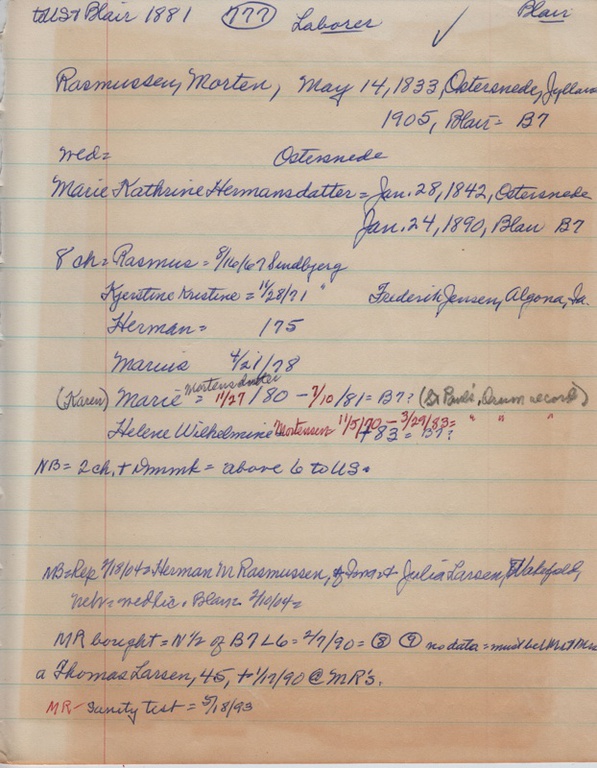 to US & Blair 1881 777 Laborer ✓ Blair
Rasmussen, Morten, May 14, 1833, Ostersnede, Jylland
1905, Blair = B7
wed = Ostersnede
Marie Kathrine Hermansdatter = Jan. 28, 1842, Ostersnede
Jan. 24, 1890, Blair B7
8 ch = Rasmus = 8/16/67 Sindbjerg
Kjerstine Kristine = 11/28/71 " Frederik Jensen, Algona, Ia.
Herman = 175
Marius 4/21/78
(Karen) Marie Mortensdatter = 11/27/80 - 7/10/81 = B7? (St Paul's, Drum record)
Helene Wilhelmine Mortensen 11/5/70 - 3/29/83 = " " "
+ 83 = B7?
NB = 2 ch. + Dnmk = above 6 to US.
NB = Rep 2/18/04 = Herman M Rasmussen, & Julia Larsen, Wakefield,
Nebr = wed lic. Blair 2/10/04 =
MR bought = N 1/2 of B7 L6 = 2/7/90 = 8 9 no data = must be
a Thomas Larsen, 45, + 1/17/90 @ MR's.
MR - Sanity test = 5/18/93